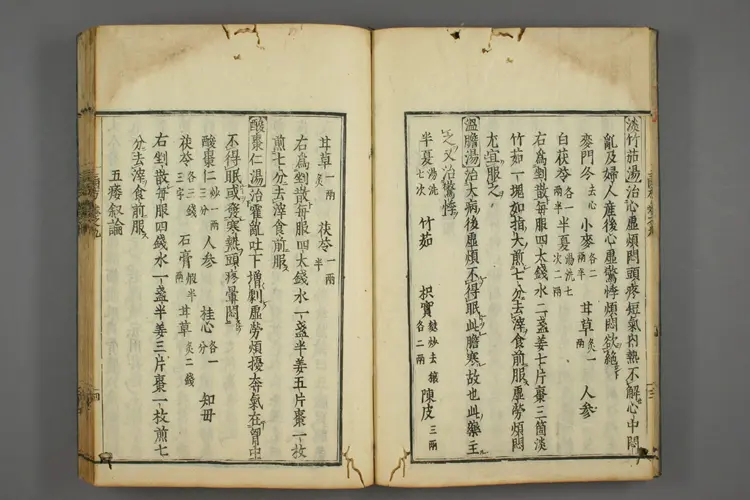 淡竹茹湯治心虛煩悶頭疼短氣内熱不解心中悶
亂及婦人産後心虛驚悸煩悶欲絶
麥門冬去心 小麥各二兩半 甘草炙一兩 人參
白茯苓各一兩半 半夏湯洗七次二兩
右為剉散每服四大錢水二盞姜七片棗三箇淡
竹茹一塊如指大煎七分去滓食前服虛勞煩悶
尤宜服之
溫膽湯治大病後虛煩不得眠此膽寒故也此藥主
之又治驚悸
半夏湯洗七次 竹茹 枳實麩炒去穰各二兩 陳皮三兩
甘草炙一兩 茯苓一兩半
右為剉散每服四大錢水一盞半姜五片棗一枚
煎七分去滓食前服
酸棗仁湯治霍亂吐下增劇虛勞煩擾奔氣在胷中
不得眠或發寒熱頭疼暈悶
酸棗仁炒一兩三分 人參 桂心各一分 知毋
茯苓各三錢三字 石膏煅半兩 甘草炙二錢
右剉散每服四錢水一盞半姜三片棗一枚煎七
分去滓食前服
五痿叙論